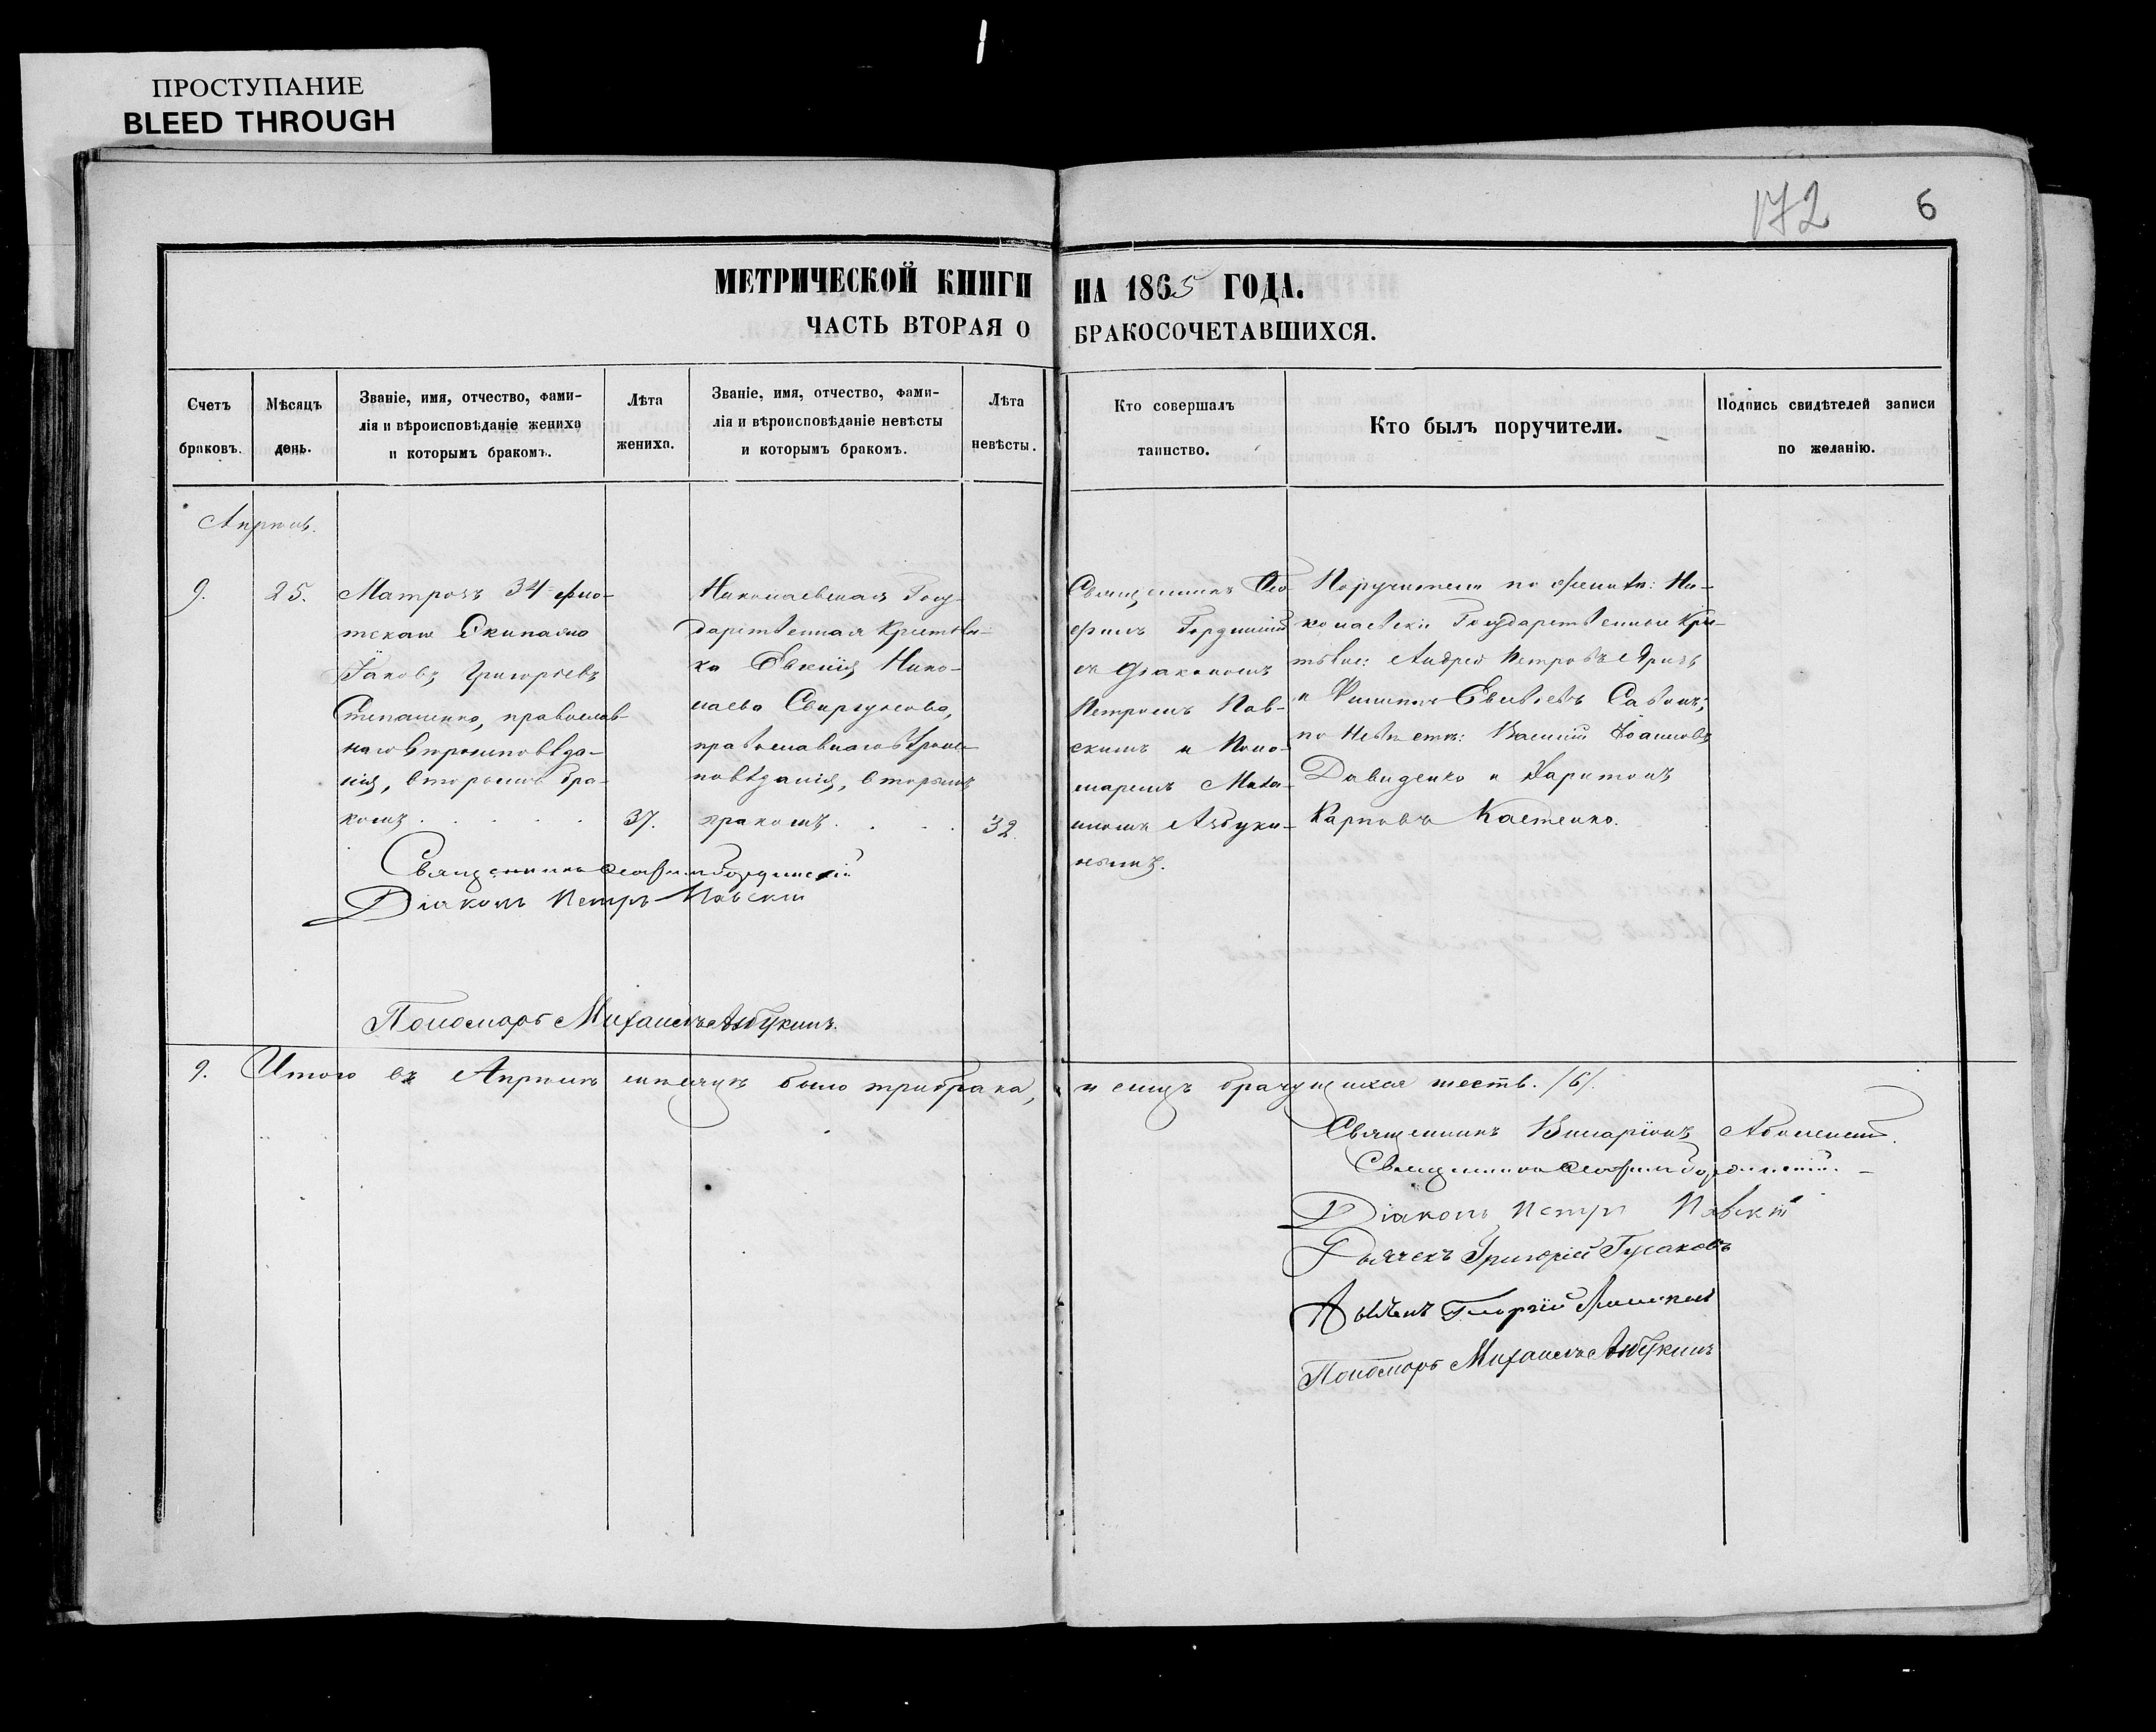 ПРОСТУПАНИЕ
BLEED THROUGH
172 6
МЕТРИЧЕСКОЙ КНИГИ НА 1865 ГОДА.
ЧАСТЬ ВТОРАЯ О БРАКОСОЧЕТАВШИХСЯ.
Счетъ браковъ.
Мѣсяцъ день.
Званіе, имя, отчество, фами-
лія и вѣроисповѣданіе жениха
и которымъ бракомъ.
Лѣта
жениха.
Званіе, имя, отчество, фами-
лія и вѣроисповѣданіе невѣсты
и которымъ бракомъ.
Лѣта
невѣсты.
Кто совершалъ
таинство.
Кто былъ поручители.
Подпись свидѣтелей записи
по желанію.
Апрѣль.
9.
25.
Матрозъ 34 фло-
тскаго Экипажа
Іаковъ Григорьевъ
Степаненко, православ-
наго вѣроисповѣда-
нія, вторымъ бра-
комъ
37.
Николаевская Госу-
дарственная Крестьян-
ка Евкнія Нико-
лаева
православнаго вѣроис-
повѣданія, вторымъ
бракомъ
32.
Священникъ Ѳео-
филъ Гординскій
съ Діакономъ
Петромъ Пав-
скимъ и Поно-
маремъ Миха-
иломъ Азбуки-
нымъ.
Поручители по женихѣ: Ни-
колаевскіе Государственные Кре-
стьяне: Андрей Петровъ
и Филиппъ
по Невѣстѣ: Василій Іоанновъ
Давиденко и Харитонъ
Карповъ Костенко.
Священникъ Ѳеофилъ Гординскій
Діаконъ Петръ Павскій
Пономарь Михаилъ Азбукинъ.
9. Итого въ Апрѣлѣ мѣсяцѣ было три брака, и лицъ брачущихся шесть. /6/.
Священникъ
Священникъ Ѳеофилъ Гординскій.
Діаконъ Петръ Павскій
Дьячекъ Григорій Гусаковъ
Георгій
Пономарь Михаилъ Азбукинъ